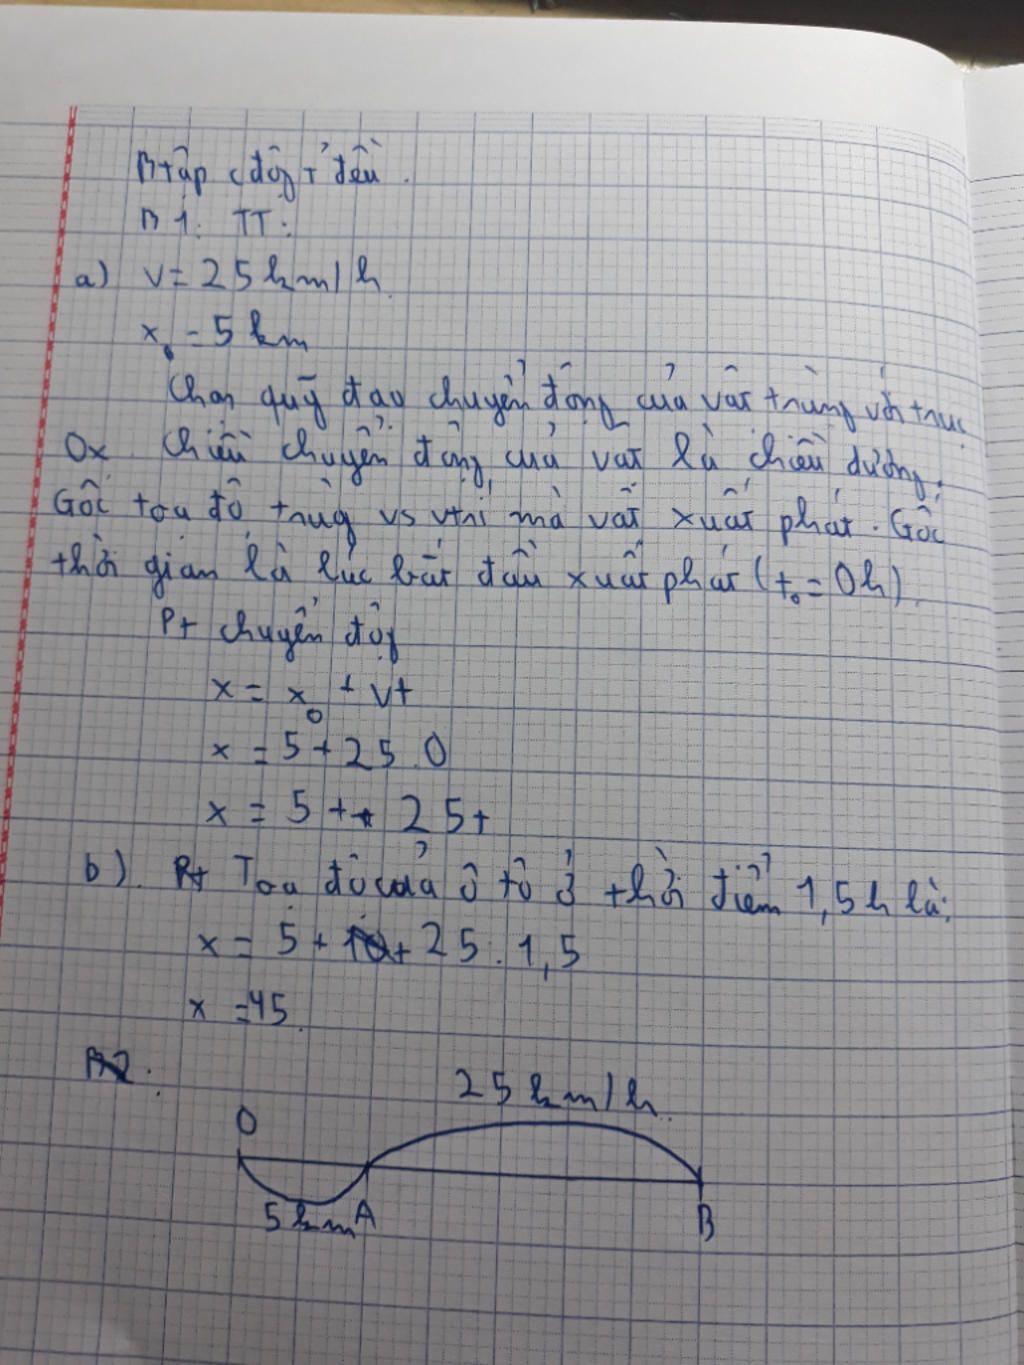 Btập cđộg T' đều.
B1: TT:
a) v = 25 km/h
x₀ = 5 km
Chọn quỹ đạo chuyển động của vật trùng với trục
Ox. Chiều chuyển động của vật là chiều dương.
Gốc toạ độ trùg vs vtrí mà vật xuất phát. Gốc
thời gian là lúc bắt đầu xuất phát (t₀ = 0h)
Pt chuyển độg
x = x₀ + vt
x = 5 + 25.0
x = 5 + 25t
b). Toạ độ của ô tô ở thời điểm 1,5h là:
x = 5 + 25.1,5
x = 45.
B2:
25 km/h.
O
5 km A
B